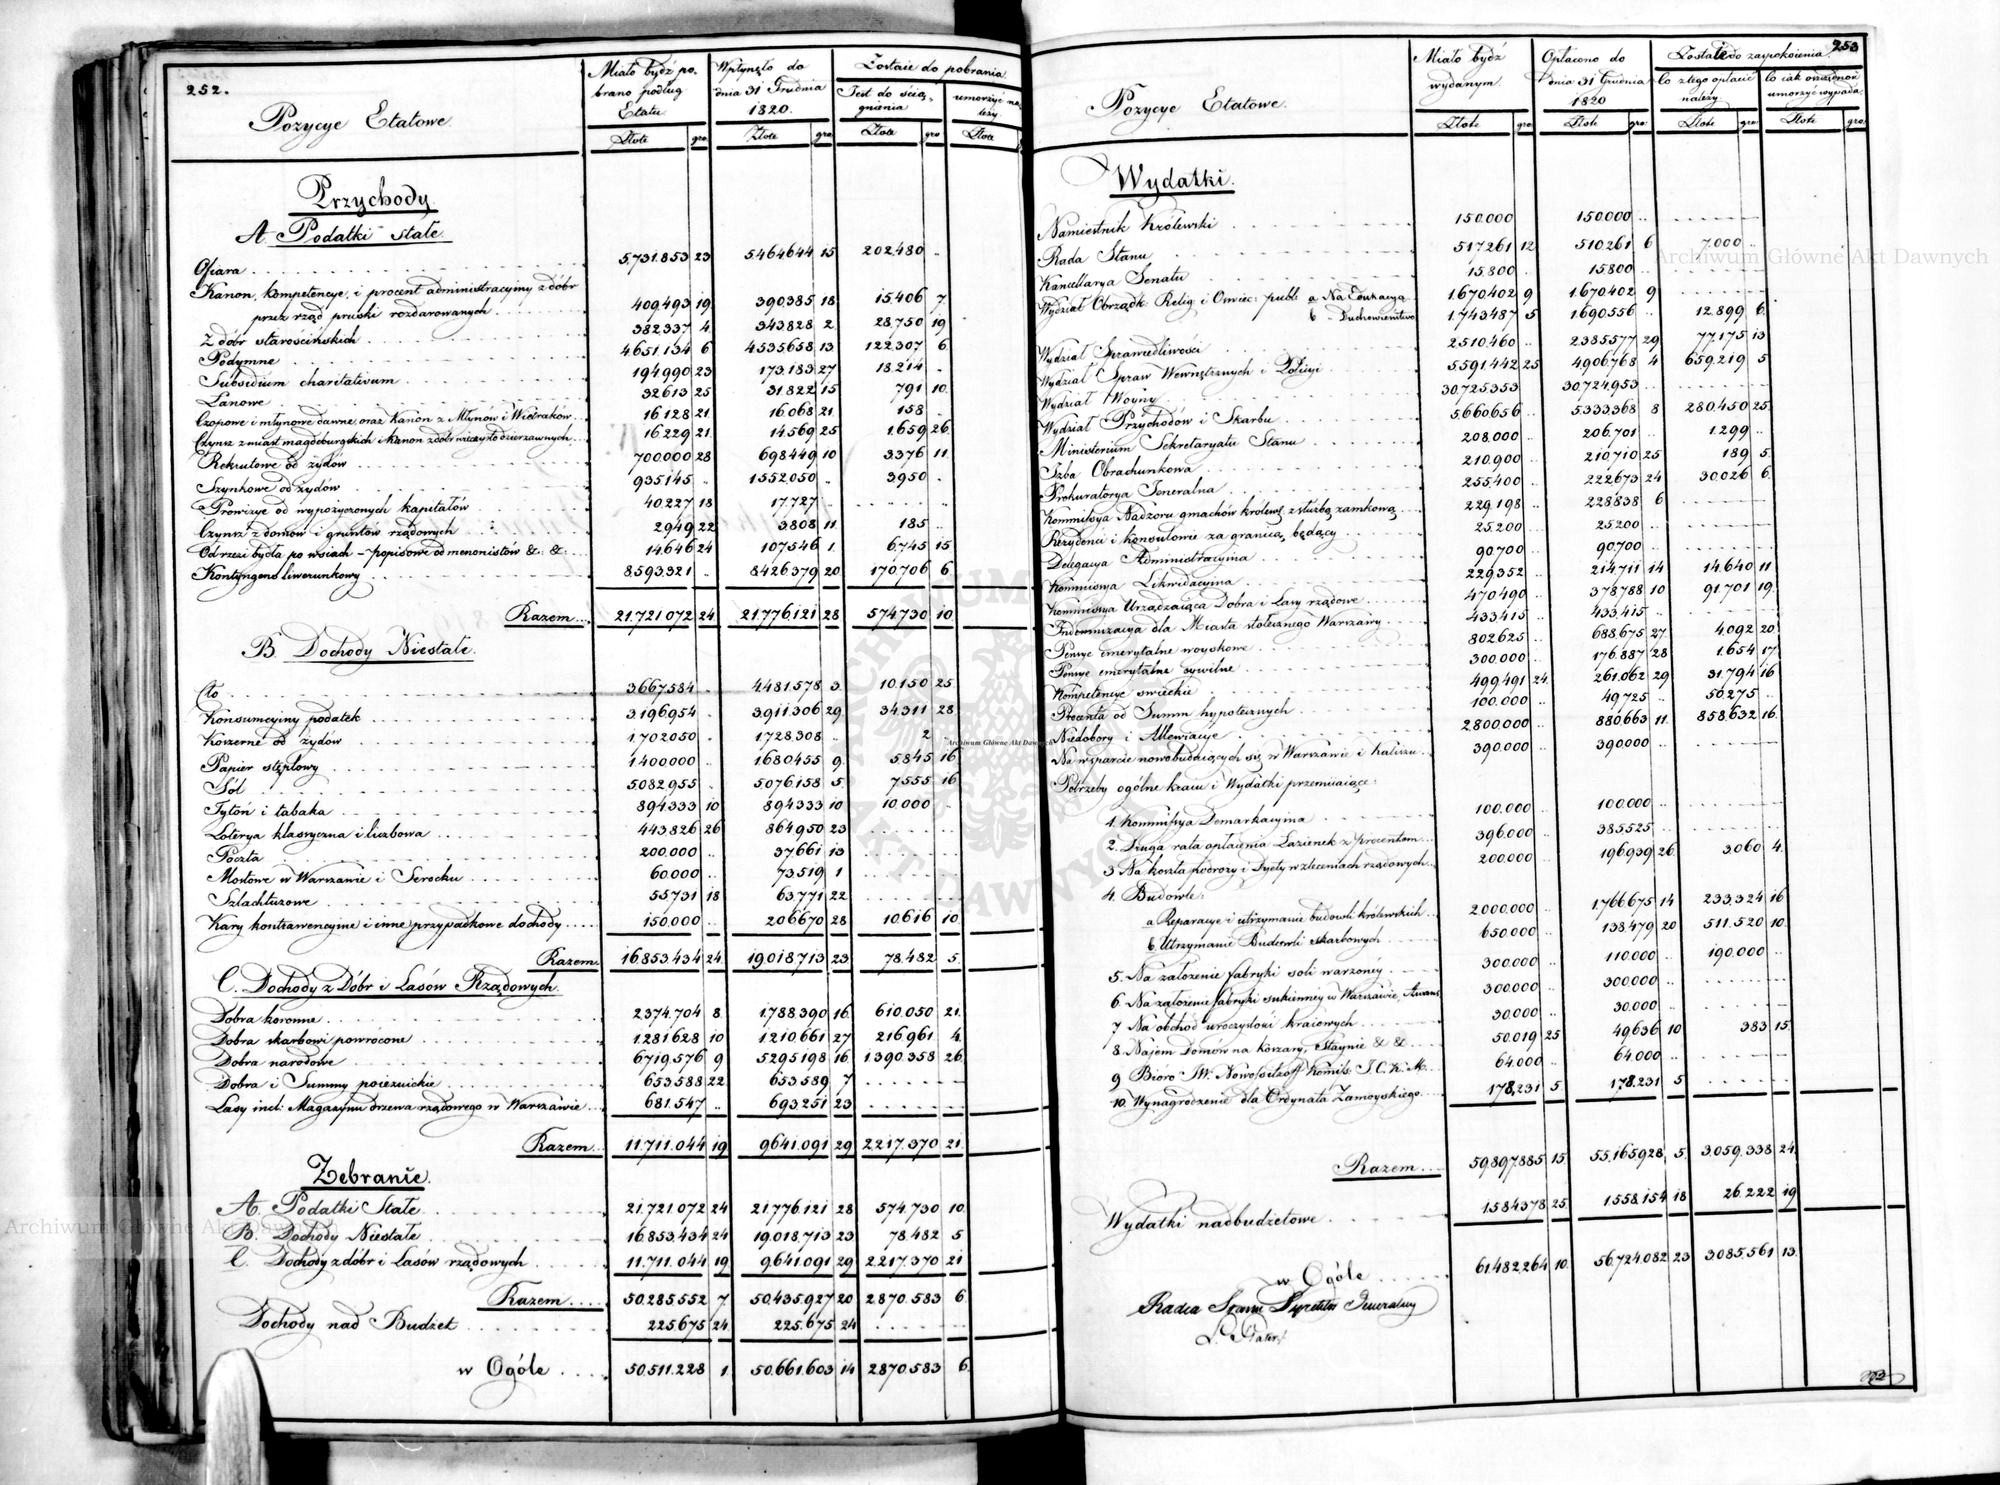 252.
Pozycye Etatowe.
Miało bydź pobrano podług Etatu
Wpłynęło do dnia 31 Grudnia 1820.
Zostaie do pobrania
Jest do ściągnienia
umorzyć należy
Złote gro: Złote gro Złote gro Złote
Przychody.
A. Podatki stałe.
Ofiara 5,731.853 23 5464644 15 202.480 ..
Kanon, kompetencye, i procent administracyiny z dóbr
przez rząd pruski rozdarowanych 409.493 19 390.385 18 15.406 7.
Z dóbr starościńskich 382.337 4 343828 2 28.750 19
Podymne 4651.134 6 4535658 13 122.307 6.
Subsidium charitativum 194990 23 173.183 27 18.214 ..
Łanowe 32613 25 31.822 15 791 10.
Czopowe i młynowe dawne, oraz Kanon z Młynów i Wiatraków 16.128 21. 16.068 21. 158 ..
Czynsz z miast magdeburskich i Kanon z dóbr wieczysto dzierżawnych 16.229 21. 14.569 25 1.659 26.
Rekrutowe od żydów 700.000 28 698449 10 3376 11.
Szynkowe od żydów 935145 .. 1552.050 .. 3950 ..
Prowizye od wypożyczonych kapitałów 40.227 18 17.727 ..
Czynsz z domów i gruntów rządowych 2949 22 3808 11. 185 ..
Od rzezi bydła po wsiach – popisowe od menonistów &: &: 14.646 24 107546 1. 6.745 15
Kontyngens liwerunkowy 8.593.321 .. 8426379 20 170.706 6.
Razem 21.721.072 24 21.776.121 28 574.730 10.
B. Dochody Niestałe.
Cło 3667.584 .. 4481.578 3. 10.150 25.
Konsumcyiny podatek 3.196954 .. 3.911.306 29. 34.311 28
Koszerne od żydów 1.702050 .. 1.728.308 .. 2 ..
Papier stęplowy 1.400000 .. 1.680455 9. 5845 16
Sól 5.082.955 .. 5.076.158 5. 7.555 16
Tytoń i tabaka 894.333 10 894333 10 10.000 ..
Loterya klasyczna i liczbowa 443.826 26 864.950 23
Poczta 200.000 .. 37.661 13
Mostowe w Warszawie i Serocku 60.000 .. 73.519 1
Szlachtuzowe 55731 18 63.771 22
Kary kontrawencyine i inne przypadkowe dochody 150.000 .. 206670 28 10616 10
Razem 16.853.434 24. 19.018.713 23 78.482 5.
C. Dochody z Dóbr i Lasów Rządowych.
Dobra koronne 2374.704 8. 1.788.390 16. 610.050 21.
Dobra skarbowi powrócone 1.281628 10 1.210.661 27 216.961 4.
Dobra narodowe 6719.576 9 5295198 16. 1.390.358 26.
Dobra i Summy poiezuickie 653588 22. 653.589 7
Lasy incl: Magazynu drzewa rządowego w Warszawie 681.547 .. 693.251 23
Razem 11.711.044 19 9641.091 29 2217.370 21.
Zebranie.
A. Podatki Stałe 21.721.072 24 21.776.121 28 574.730 10.
B. Dochody Niestałe 16.853.434 24 19.018.713 23 78.482 5
C. Dochody z dóbr i Lasów rządowych 11.711.044 19 9641.091 29 2217.370 21
Razem 50.285.552 7. 50.435.927 20 2870.583 6.
Dochody nad Budżet 225675 24 225.675 24
w Ogóle 50.511.228 1. 50.661.603 14 2870.583 6.
253
Pozycye Etatowe.
Miało bydź wydanym.
Opłacono do dnia 31 Grudnia 1820
Zostaie do zaspokoienia
Co z tego opłacić należy
Co iak oszczędność umorzyć wypada:
Złote gro: Złote gro: Złote gro: Złote gro:
Wydatki.
Namiestnik Królewski 150.000 150.000 ..
Rada Stanu 517261 12 510261 6 7.000 ..
Kancellarya Senatu 15.800 .. 15.800 ..
Wydział Obrządk: Relig: i Oświec: publ: a Na Edukacyą 1.670.402 9 1.670.402 9
b – Duchowieństwo 1.743487 5 1.690.556 .. 12.899 6.
Wydział Sprawiedliwości 2510.460 .. 2385577 29 77.175 13
Wydział Spraw Wewnętrznych i Policyi 5.591.442 25 4906.768 4 659.219 5
Wydział Woyny 30.725.353 30.724.953 ..
Wydział Przychodów i Skarbu 5.660656 .. 5333368 8 280.450 25.
Ministerium Sekretaryatu Stanu 208.000 .. 206.701 .. 1.299 ..
Izba Obrachunkowa 210.900 .. 210.710 25 189 5.
Prokuratorya Jeneralna 255.400 .. 222.673 24 30.026 6.
Kommissya Nadzoru gmachów królews: z służbą zamkową 229.198 .. 228.838 6
Rezydenci i konsulowie za granicą będący 25.200 .. 25.200 ..
Delegacya Administracyina 90.700 .. 90.700 ..
Kommissya Likwidacyina 229.352 .. 214.711 14 14.640 11
Kommissya Urządzaiąca Dobra i Lasy rządowe 470.490 .. 378.788 10 91.701 19.
Indemnizacya dla Miasta stołecznego Warszawy 433.415 .. 433.415 ..
Pensye emerytalne woyskowe 802625 .. 688.675 27. 4.092 20
Pensye emerytalne cywilne 300.000 .. 176.887 28 1.654 17.
Kompetencye swieckie 499.491 24. 261.062 29 31.794 16
Procenta od Summ hypotecznych 100.000 .. 49.725 .. 50275 ..
Niedobory i Allewiacye 2.800.000 .. 880.663 11. 858.632 16.
Na wsparcie nowobuduiących się w Warszawie i Kaliszu 390.000 .. 390.000 ..
Potrzeby ogólne kraiu i Wydatki przemiiaiące:
1. Kommissya Demarkacyina 100.000 .. 100.000 ..
2. Druga rata opłacenia Łazienek z procentem 396.000 .. 385.525 ..
3 Na koszta podróży i Dyety w zleceniach rządowych 200.000 .. 196.939 26. 3.060 4.
4. Budowle:
a Reparacye i utrzymanie budowli królewskich 2.000.000 .. 1.766675 14 233.324 16
b. Utrzymanie Budowli skarbowych 650.000 .. 138.479 20 511.520 10.
5. Na założenie fabryki soli warzoney 300.000 .. 110.000 .. 190.000 ..
6. Na założenie fabryki sukienney w Warszawie, Awans 300.000 .. 300.000 ..
7 Na obchód uroczystości kraiowych 30.000 .. 30.000 ..
8. Najem Domów na Koszary, Staynie & & 50.019 25 49636 10 383 15.
9 Bióro JW. Nowossiltzoff Komiss: J. C. K. M. 64.000 .. 64.000 ..
10. Wynagrodzenie dla Ordynata Zamoyskiego 178.231 5 178.231 5
Razem 59.897.885 15. 55.165928 5. 3.059.338 24.
Wydatki nadbudżetowe 1.584378 25. 1.558.154 18 26.222 19
w Ogóle 61.482.264 10. 56.724.082 23 3.085.561 13.
Radca Stanu Dyrektor Jeneralny
Archiwum Główne Akt Dawnych
Archiwum Główne Akt Dawnych
Archiwum Główne Akt Dawnych
ARCHIWUM
AKT DAWNYCH